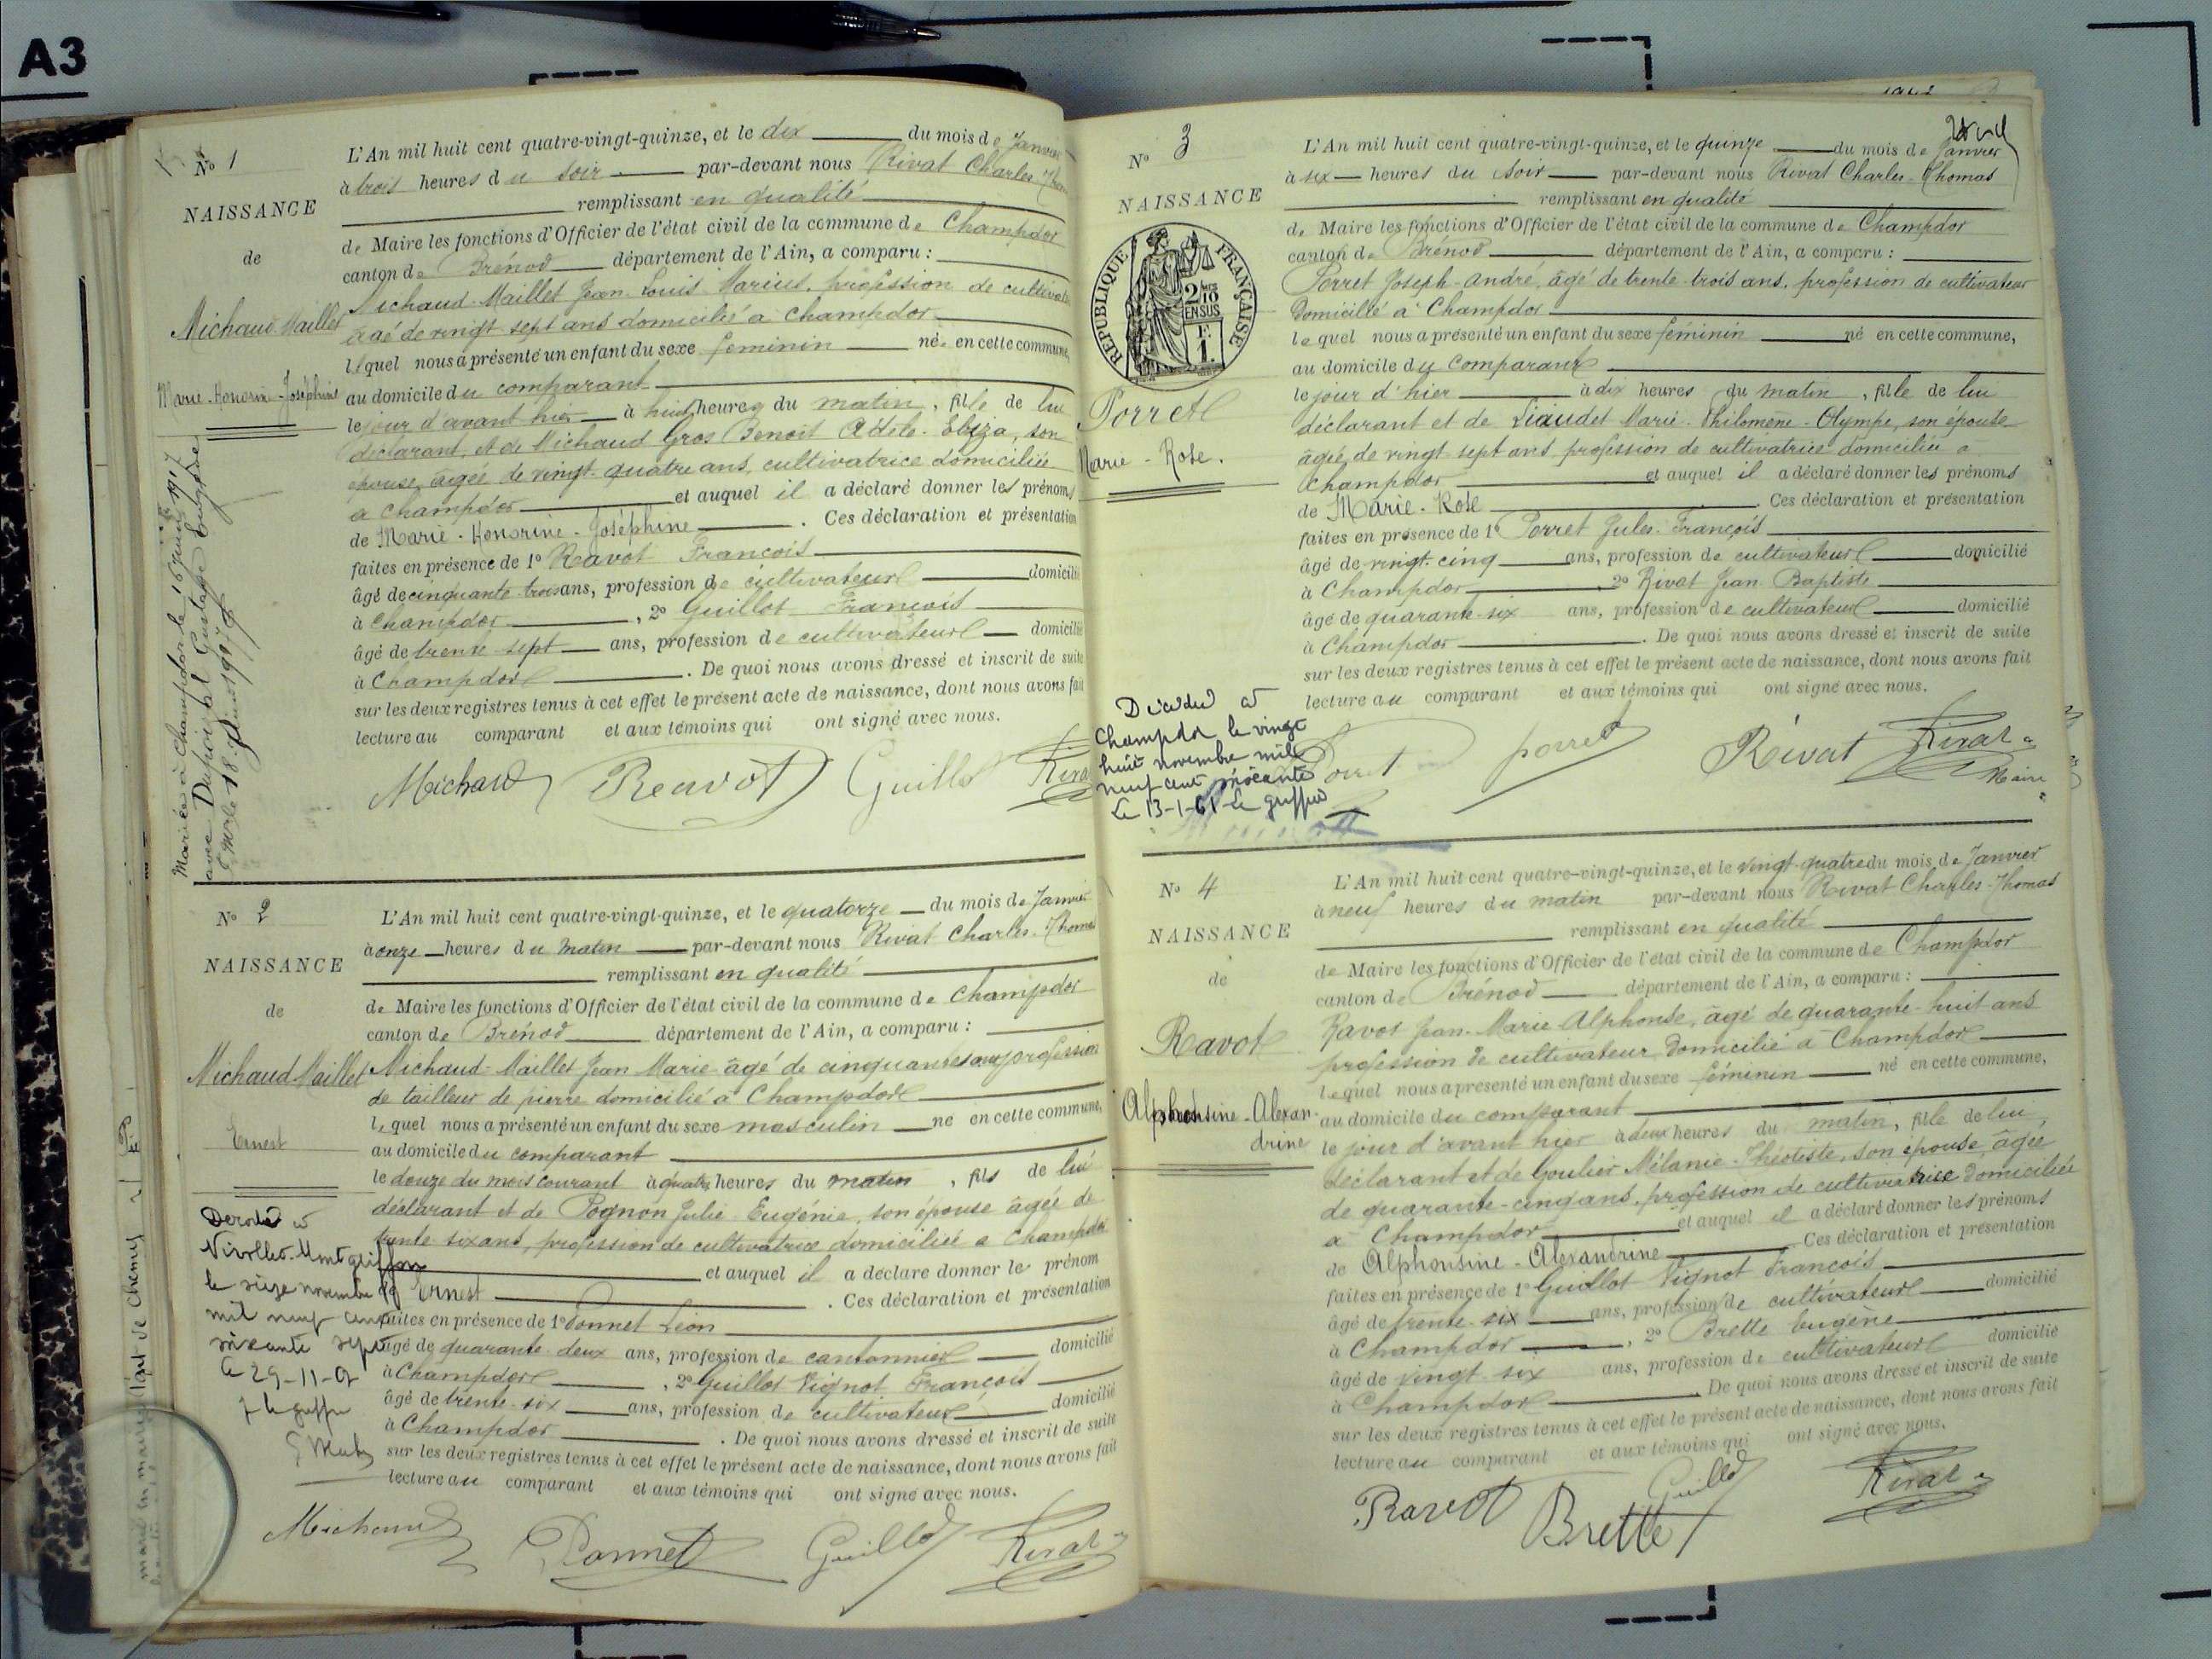 A3
No 1
NAISSANCE
de
Michaud Maillet
Marie-Honorine-Joséphine
L'An mil huit cent quatre-vingt-quinze, et le dix du mois de Janvier
à trois heures du soir par-devant nous Rivat Charles-Thomas
remplissant en qualité
de Maire les fonctions d'Officier de l'état civil de la commune de Champdor
canton de Brénod département de l'Ain, a comparu :
Michaud-Maillet Jean-Louis Marius, profession de cultivateur
âgé de vingt-sept ans domicilié à Champdor
lequel nous a présenté un enfant du sexe féminin né en cette commune,
au domicile du comparant
le jour d'avant hier à huit heures du matin, fille de lui
déclarant, et de Michaud Gros Benoît Adèle-Eliza, son
épouse, âgée de vingt-quatre ans, cultivatrice domiciliée
à Champdor et auquel il a déclaré donner les prénoms
de Marie-Honorine-Joséphine. Ces déclaration et présentation
faites en présence de 1o Ravot François
âgé de cinquante-trois ans, profession de cultivateur domicilié
à Champdor, 2o Guillot François
âgé de trente-sept ans, profession de cultivateur domicilié
à Champdor. De quoi nous avons dressé et inscrit de suite
sur les deux registres tenus à cet effet le présent acte de naissance, dont nous avons fait
lecture au comparant et aux témoins qui ont signé avec nous.
Michaud Ravot Guillot Rivat
Mariée à Champdor le 16 juin 1917
avec Gustave Eugène
le 18 Juin 1917
No 2
NAISSANCE
de
Michaud Maillet
Ernest
L'An mil huit cent quatre-vingt-quinze, et le quatorze du mois de Janvier
à onze heures du matin par-devant nous Rivat Charles-Thomas
remplissant en qualité
de Maire les fonctions d'Officier de l'état civil de la commune de Champdor
canton de Brénod département de l'Ain, a comparu :
Michaud-Maillet Jean Marie âgé de cinquante ans profession
de tailleur de pierre domicilié à Champdor
lequel nous a présenté un enfant du sexe masculin né en cette commune,
au domicile du comparant
le douze du mois courant à quatre heures du matin, fils de lui
déclarant et de Pognon Julie Eugénie, son épouse âgée de
trente-six ans, profession de cultivatrice domiciliée à Champdor
et auquel il a déclaré donner le prénom
de Ernest. Ces déclaration et présentation
faites en présence de 1o Donnet Léon
âgé de quarante-deux ans, profession de cantonnier domicilié
à Champdor, 2o Guillot Vignot François
âgé de trente-six ans, profession de cultivateur domicilié
à Champdor. De quoi nous avons dressé et inscrit de suite
sur les deux registres tenus à cet effet le présent acte de naissance, dont nous avons fait
lecture au comparant et aux témoins qui ont signé avec nous.
Michaud Donnet Guillot Rivat
Décédé à
Nivollet-Montgriffon
le seize novembre
mil neuf cent
soixante sept
Le 29-11-67
le greffier
No 3
NAISSANCE
RÉPUBLIQUE FRANÇAISE
2/10 EN SUS
F.
1.
Porret
Marie-Rose.
L'An mil huit cent quatre-vingt-quinze, et le quinze du mois de Janvier
à six heures du soir par-devant nous Rivat Charles-Thomas
remplissant en qualité
de Maire les fonctions d'Officier de l'état civil de la commune de Champdor
canton de Brénod département de l'Ain, a comparu :
Porret Joseph-André, âgé de trente-trois ans, profession de cultivateur
domicilié à Champdor
lequel nous a présenté un enfant du sexe féminin né en cette commune,
au domicile du comparant
le jour d'hier à dix heures du matin, fille de lui
déclarant et de Liaudet Marie-Philomène-Olympe, son épouse
âgée de vingt-sept ans, profession de cultivatrice domiciliée à
Champdor et auquel il a déclaré donner les prénoms
de Marie-Rose. Ces déclaration et présentation
faites en présence de 1o Porret Jules-François
âgé de vingt-cinq ans, profession de cultivateur domicilié
à Champdor 2o Rivat Jean-Baptiste
âgé de quarante-six ans, profession de cultivateur domicilié
à Champdor. De quoi nous avons dressé et inscrit de suite
sur les deux registres tenus à cet effet le présent acte de naissance, dont nous avons fait
lecture au comparant et aux témoins qui ont signé avec nous.
Porret porret Rivat Rivat
Maire
Décédée à
Champdor le vingt
huit novembre mil
neuf cent soixante
Le 13-1-61 Le greffier
No 4
NAISSANCE
de
Ravot
Alphonsine-Alexan-
drine
L'An mil huit cent quatre-vingt-quinze, et le vingt-quatre du mois de Janvier
à neuf heures du matin par-devant nous Rivat Charles-Thomas
remplissant en qualité
de Maire les fonctions d'Officier de l'état civil de la commune de Champdor
canton de Brénod département de l'Ain, a comparu :
Ravot Jean-Marie Alphonse, âgé de quarante-huit ans
profession de cultivateur domicilié à Champdor
lequel nous a présenté un enfant du sexe féminin né en cette commune,
au domicile du comparant
le jour d'avant hier à deux heures du matin, fille de lui,
déclarant et de Goulier Mélanie-Théotiste, son épouse, âgée
de quarante-cinq ans, profession de cultivatrice domiciliée
à Champdor et auquel il a déclaré donner les prénoms
de Alphonsine-Alexandrine Ces déclaration et présentation
faites en présence de 1o Guillot Vignot François
âgé de trente-six ans, profession de cultivateur domicilié
à Champdor, 2o Brette Eugène
âgé de vingt-six ans, profession de cultivateur domicilié
à Champdor. De quoi nous avons dressé et inscrit de suite
sur les deux registres tenus à cet effet le présent acte de naissance, dont nous avons fait
lecture au comparant et aux témoins qui ont signé avec nous.
Ravot Brette Guillot Rivat